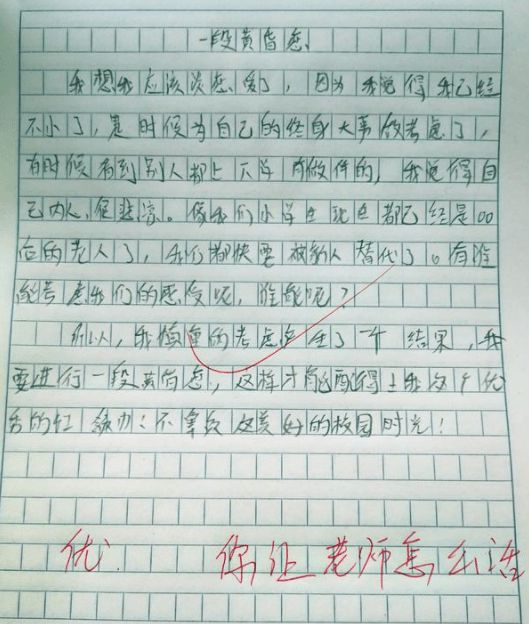 一段黄昏恋
我想我应该谈恋爱了,因为我觉得我已经
不小了,是时候为自己的终身大事做考虑了,
有时候看到别人都上下学有做伴的,我觉得自
己内人很悲凉。像我们小学生现在都已经是00
后的老人了,我们都快要被新人替代了。有谁
能考虑我们的感受呢,谁能呢?
所以,我慎重的考虑产生了一个结果,我
要进行一段黄昏恋,这样才能配得上我这个优
秀的红领巾!不辜负这美好的校园时光!
优 你让老师怎么活